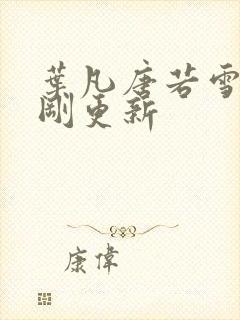 葉凡唐若雪
剛更新
康偉